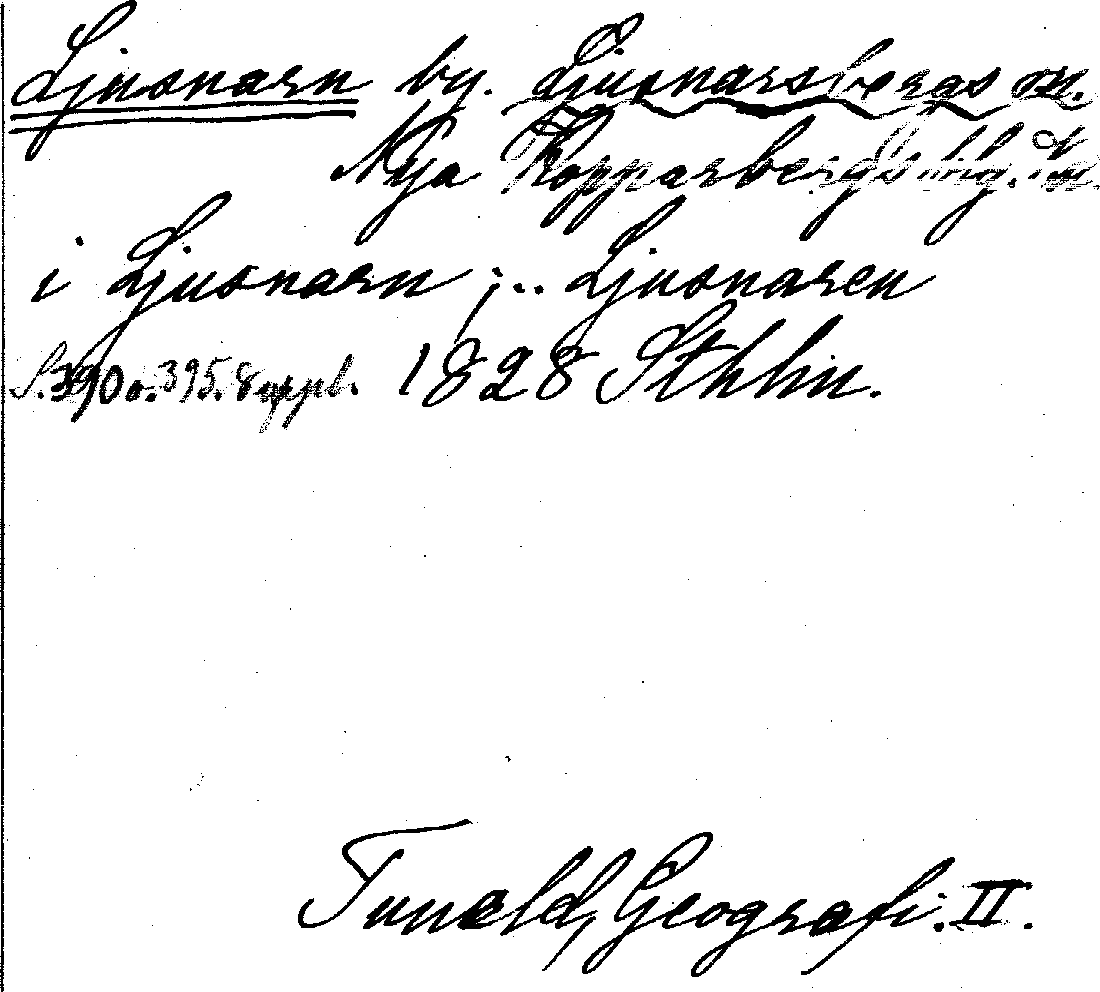 Ljusnarn by. Ljusnarsbergs sn.
Nya Kopparbergs
i Ljusnarn ; .. Ljusnaren
S. 390 o. 395. 8 uppl. 1828 Sthlm.
Tuneld, Geografi. II.